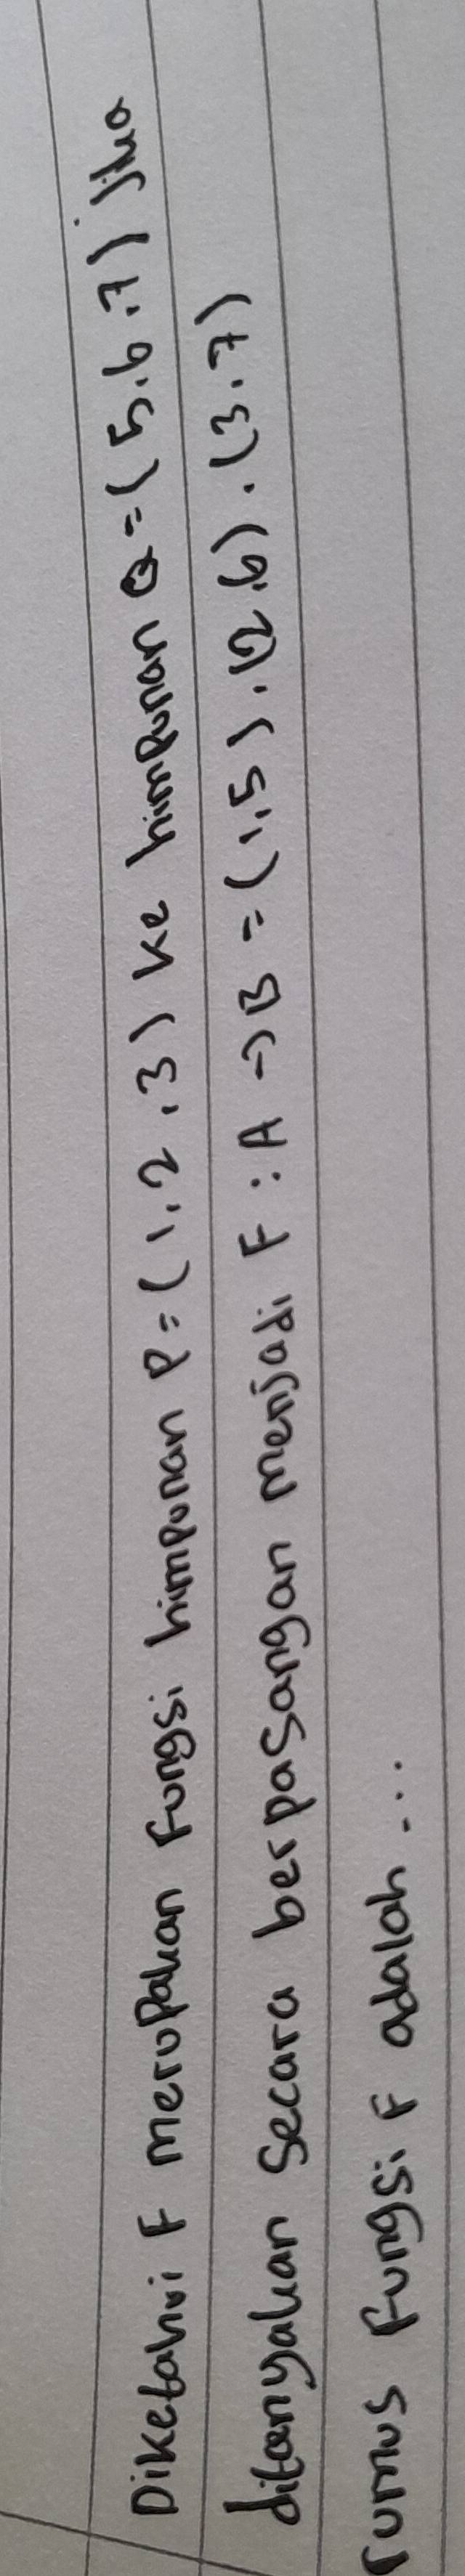 Diketahui F merupakan fungsi himpunan P = (1.2.3) ke himpunan Q = (5.6.7) jika
ditanyakan secara berpasangan menjadi F : A → B = (1.5).(2.6).(3.7)
rumus fungsi F adalah ...